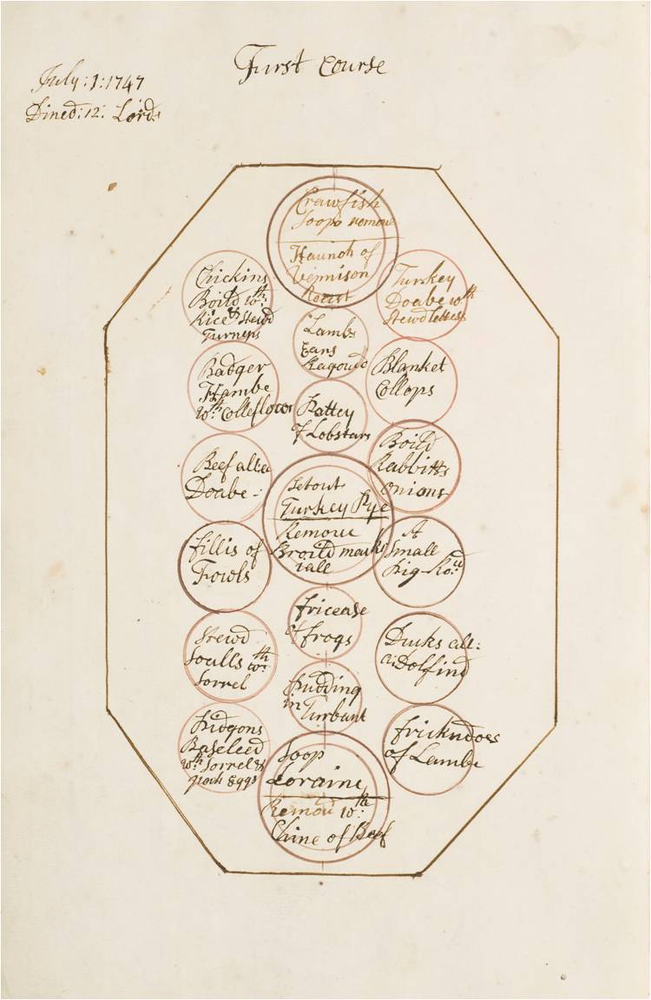 First Course
July: 1: 1747
Dined: 12: Lords
Crawfish
Soop remove
Haunch of
Vennison
Roast
Chickins
Boild wth:
Rice & Stewd
Turneps
Turkey
Doabe wth
Stewd
Lambs
Ears
Ragoud
Badger
Hambe
wth: Colleflower
Blanket
Collops
Pattey
of Lobstars
Boild
Rabbitts
Onions
Beef allea
Doabe
Turkey Pye
Remove
Broild
fillis of
Fowls
A
Small
Pig
fricease
of frogs
Stewd
Soalls wth:
Sorrel
Ducks all:
a Dolfind
Pudding
in Turbant
Pidgons
wth: Sorrel &
Eggs
frickndoes
of Lambe
Soop
Loraine
Remove wth:
Chine of Beef